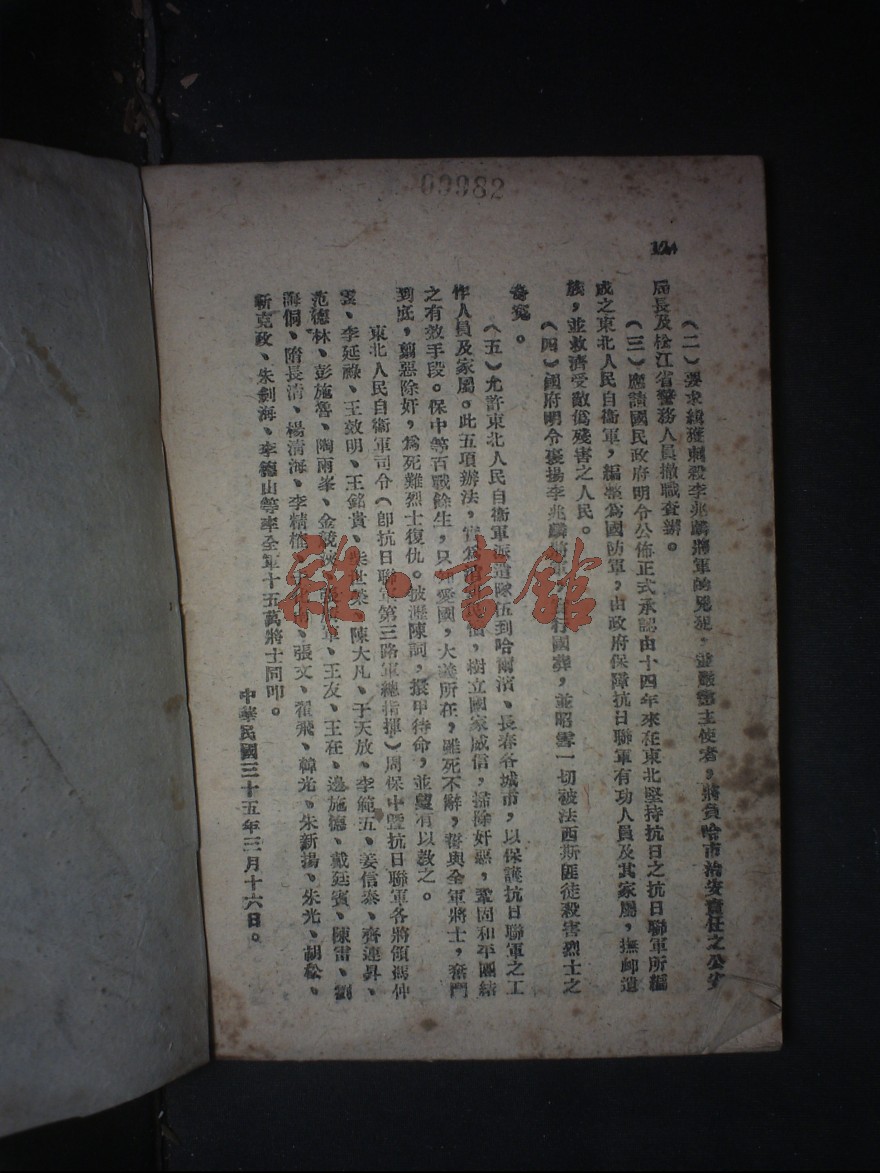 00982
124
(二)要求緝獲刺殺李兆麟將軍的兇犯,並嚴懲主使者,將負哈市治安責任之公安
局長及松江省警務人員撤職查辦。
(三)應請國民政府明令公佈正式承認由十四年來在東北堅持抗日之抗日聯軍所編
成之東北人民自衞軍,編製爲國防軍,由政府保障抗日聯軍有功人員及其家屬,撫卹遺
族,並救濟受敵僞殘害之人民。
(四)國府明令褒揚李兆麟將軍 國葬,並昭雪一切被法西斯匪徒殺害烈士之
寃。
(五)允許東北人民自衞軍派遣隊伍到哈爾濱、長春各城市,以保護抗日聯軍之工
作人員及家屬。此五項辦法,實爲 ,樹立國家威信,掃除奸惡,鞏固和平團結
之有效手段。保中等百戰餘生,只 愛國,大義所在,雖死不辭,誓與全軍將士,奮鬥
到底,剪惡除奸,爲死難烈士復仇。披瀝陳詞,擐甲待命,並望有以敎之。
東北人民自衞軍司令(即抗日聯軍第三路軍總指揮)周保中暨抗日聯軍各將領馮仲
雲、李延祿、王效明、王銘貴、 世榮、陳大凡、于天放、李範五、姜信泰、齊連昇、
范德林、彭施魯、陶雨峯、金 軍、王友、王在、邊施德、戴廷賓、陳雷、劉
海侗、隋長清、楊清海、李精 、張文、翟飛、韓光、朱新揚、朱光、胡松、
靳克政、朱劍海、李德山等率全軍十五萬將士同叩。
中華民國三十五年三月十六日。
雜·書館